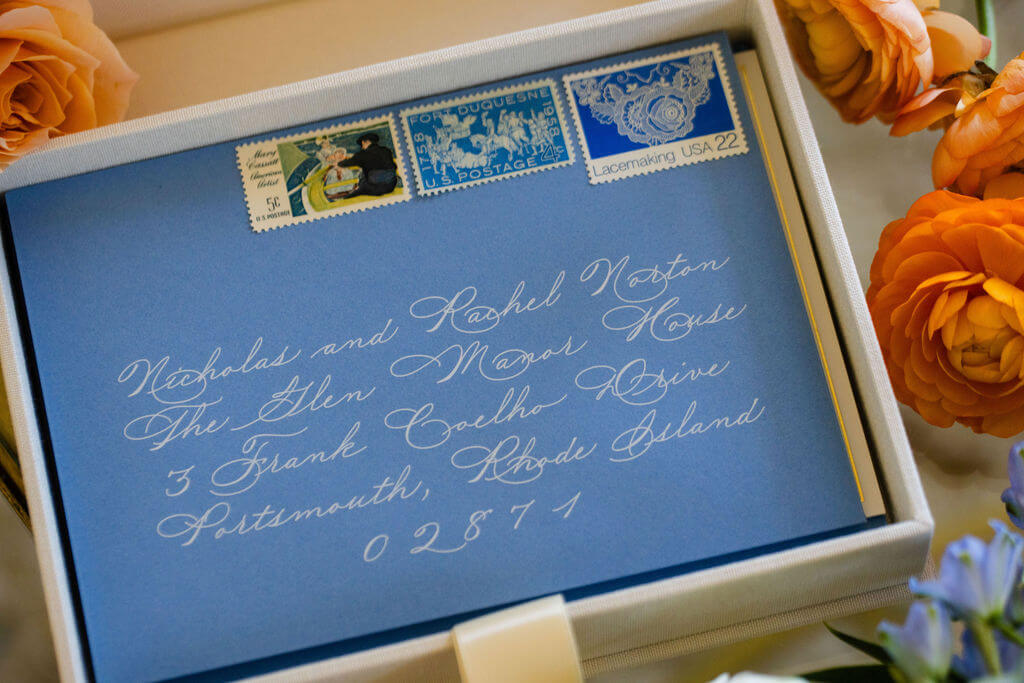 Mary
Cassatt
American
Artist
5¢
U.S. POSTAGE
FORT DUQUESNE
1758
1958
4¢
U.S. POSTAGE
Lacemaking USA 22
Nicholas and Rachel Norton
The Glen Manor House
3 Frank Coelho Drive
Portsmouth, Rhode Island
02871